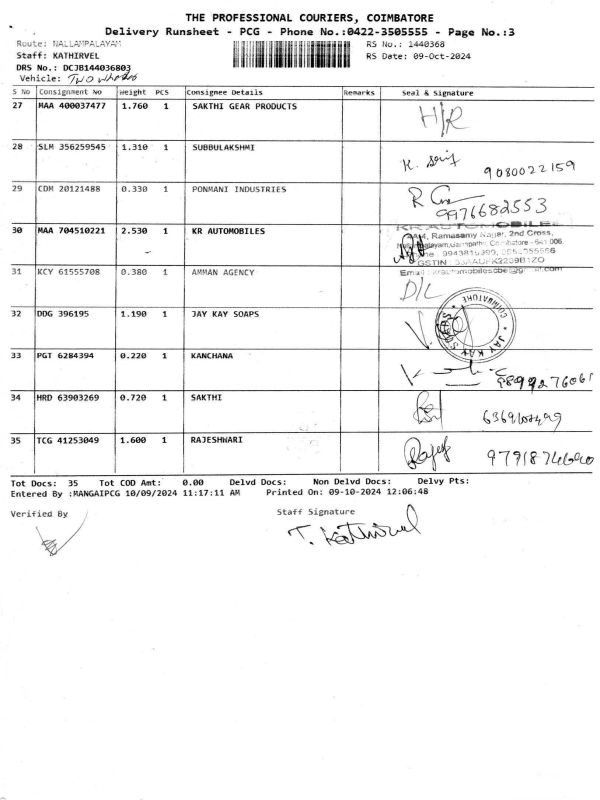 THE PROFESSIONAL COURIERS, COIMBATORE
Delivery Runsheet - PCG - Phone No.:0422-3505555 - Page No.:3
Route: NALLAMPALAYAM
RS No.: 1440368
Staff: KATHIRVEL
RS Date: 09-Oct-2024
DRS No.: DCJB144036803
Vehicle: Two wheeler
S No Consignment No Weight PCS Consignee Details Remarks Seal & Signature
27 MAA 400037477 1.760 1 SAKTHI GEAR PRODUCTS H/R
28 SLM 356259545 1.310 1 SUBBULAKSHMI K. 9080022159
29 CDM 20121488 0.330 1 PONMANI INDUSTRIES 9976682553
30 MAA 704510221 2.530 1 KR AUTOMOBILES
KR AUTOMOBILES
Ramasamy Nagar, 2nd Cross,
Coimbatore - 641 006.
31 KCY 61555708 0.380 1 AMMAN AGENCY D/L
32 DDG 396195 1.190 1 JAY KAY SOAPS
COIMBATORE * JAY KAY SOAPS *
33 PGT 6284394 0.220 1 KANCHANA
34 HRD 63903269 0.720 1 SAKTHI
35 TCG 41253049 1.600 1 RAJESHWARI Rajes
Tot Docs: 35 Tot COD Amt: 0.00 Delvd Docs: Non Delvd Docs: Delvy Pts:
Entered By :MANGAIPCG 10/09/2024 11:17:11 AM Printed On: 09-10-2024 12:06:48
Verified By
Staff Signature
T. Kathirvel